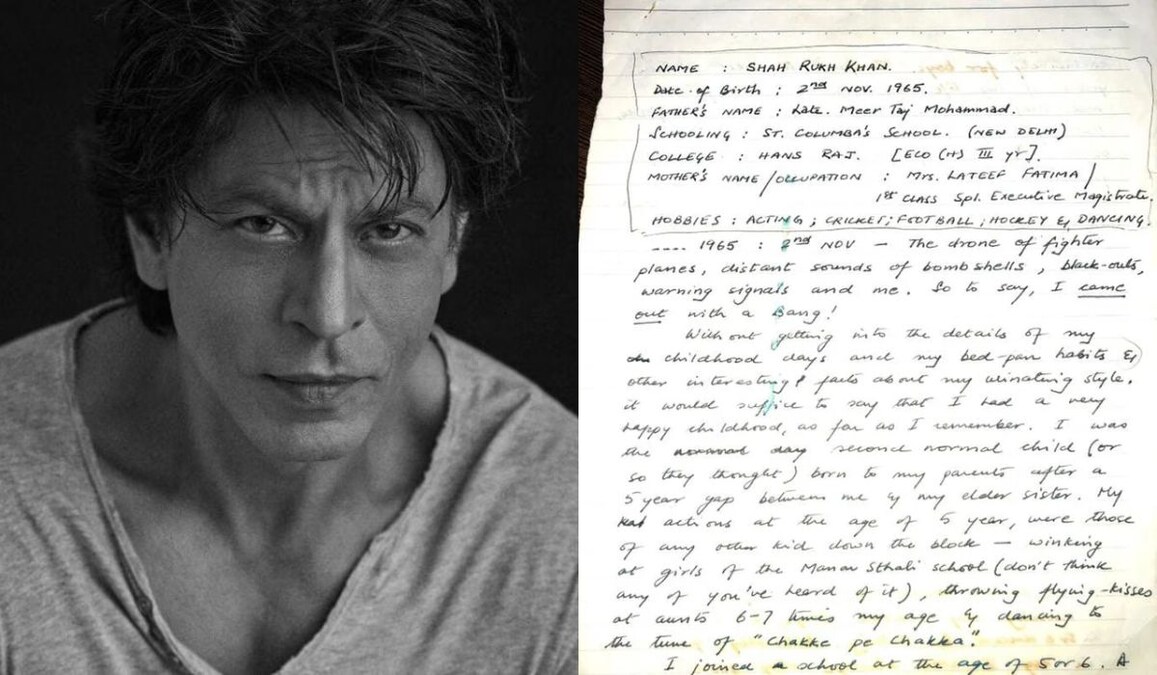 NAME : SHAH RUKH KHAN.
Date of Birth : 2nd NOV. 1965.
FATHER'S NAME : Late. Meer Taj Mohammad.
SCHOOLING : ST. COLUMBA'S SCHOOL. (NEW DELHI)
COLLEGE : HANS RAJ. [ECO (H) III yr].
MOTHER'S NAME/OCCUPATION : Mrs. LATEEF FATIMA/
1st CLASS Spl. Executive Magistrate.
HOBBIES : ACTING ; CRICKET; FOOTBALL ; HOCKEY & DANCING.
---- 1965 : 2nd NOV — The drone of fighter
planes, distant sounds of bombshells, black-outs,
warning signals and me. So to say, I came
out with a Bang!
Without getting into the details of my
childhood days and my bed-pan habits &
other interesting facts about my urinating style,
it would suffice to say that I had a very
happy childhood, as far as I remember. I was
the second normal child (or
so they thought) born to my parents after a
5 year gap between me & my elder sister. My
actions at the age of 5 year, were those
of any other kid down the block — winking
at girls of the Manav Sthali school (don't think
any of you've heard of it), throwing flying-kisses
at aunts 6-7 times my age & dancing to
the tune of "Chakke pe Chakka".
I joined a school at the age of 5 or 6. A